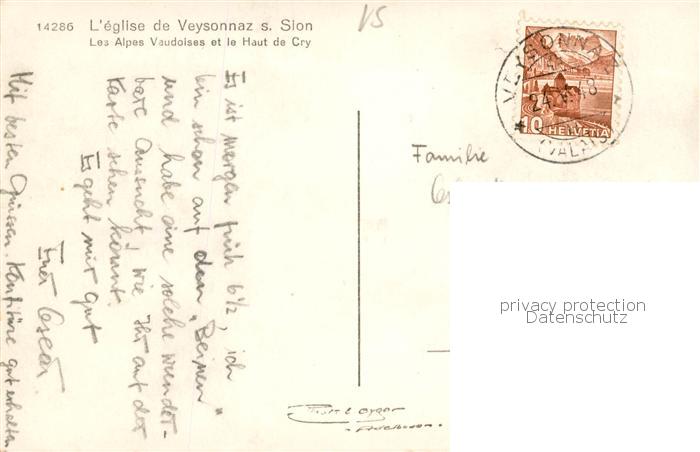 14286 L'église de Veysonnaz s. Sion
Les Alpes Vaudoises et le Haut de Cry
VS
VEYSONNAZ
(VALAIS)
10 HELVETIA
Es ist morgen früh 6½, ich
bin schon auf den "Beinen"
und habe eine solche wunder-
bare Aussicht! wie Ihr auf der
Karte sehen könnt.
Es geht mir gut
Euer Oscar
Mit besten Grüssen. Konfitüre gut erhalten
Familie
privacy protection
Datenschutz
Gyger
Adelboden